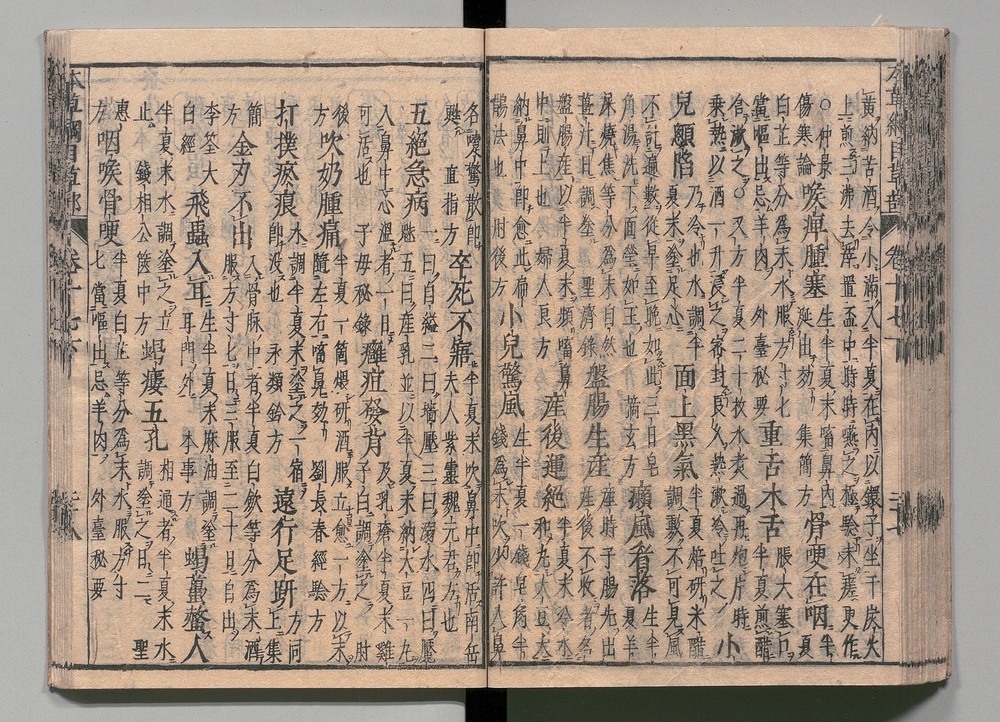 黃納苦酒令小滿入半夏在内以鐶子坐于炭火
上煎三沸去滓置盃中時時嚥之極驗未瘥更作
○仲景傷寒論 喉痺腫塞 生半夏末嗃鼻内涎出効集簡方 骨哽在咽 半夏
白芷等分為末水服方寸七當嘔出忌羊肉 外臺秘要 重舌木舌 脹大塞口半夏煎醋
含漱之○又方半夏二十枚水煮過再炮片時乗熱以酒一升浸之密封良久熱漱冷吐之 小
兒顖陷 乃冷也水調半夏末塗足心 面上黑氣 半夏焙研米醋調敷不可見風
不計遍數從早至晚如此三日皂角湯洗下面瑩如玉也 摘玄方 癩風眉落 生半夏羊
屎燒焦等分為末自然薑汁日調塗 聖濟錄 盤腸生産 産時子腸先出産後不收者名
盤腸産以半夏末頻嗃鼻中則上也 婦人良方 産後運絶 半夏末冷水和丸大豆大
納鼻中即愈此扁鵲法也 肘後方 小兒驚風 生半夏一錢皂角半錢為末吹少許入鼻
名嚏驚散即甦 直指方 卒死不寤 半夏末吹鼻中即活南岳夫人紫靈魏元君方也
五絶急病 一曰自縊二曰墻壓三曰溺水四曰魘魅五曰産乳並以半夏末納大豆一丸
入鼻中心温者一日可活也 子母秘錄 癰疽發背 及乳瘡半夏末雞子白調塗之 肘
後方 吹奶腫痛 半夏一箇煨研酒服立愈一方以末隨左右嗃鼻効 劉長春經驗方
打撲瘀痕 水調半夏末塗之一宿即没也 永類鈐方 遠行足趼 方同上集
簡方 金刃不出 入骨脉中者半夏白歛等分為末酒服方寸七日三服至二十日自出
李筌太白經 飛蟲入耳 生半夏末麻油調塗耳門外 本事方 蝎蠆螫人
半夏末水調塗之立止 錢相公篋中方 蝎瘻五孔 相通者半夏末水調塗之日二 聖
惠方 咽喉骨哽 半夏白芷等分為末水服方寸七當嘔出忌羊肉 外臺秘要
本草綱目草部 卷十七 二十八